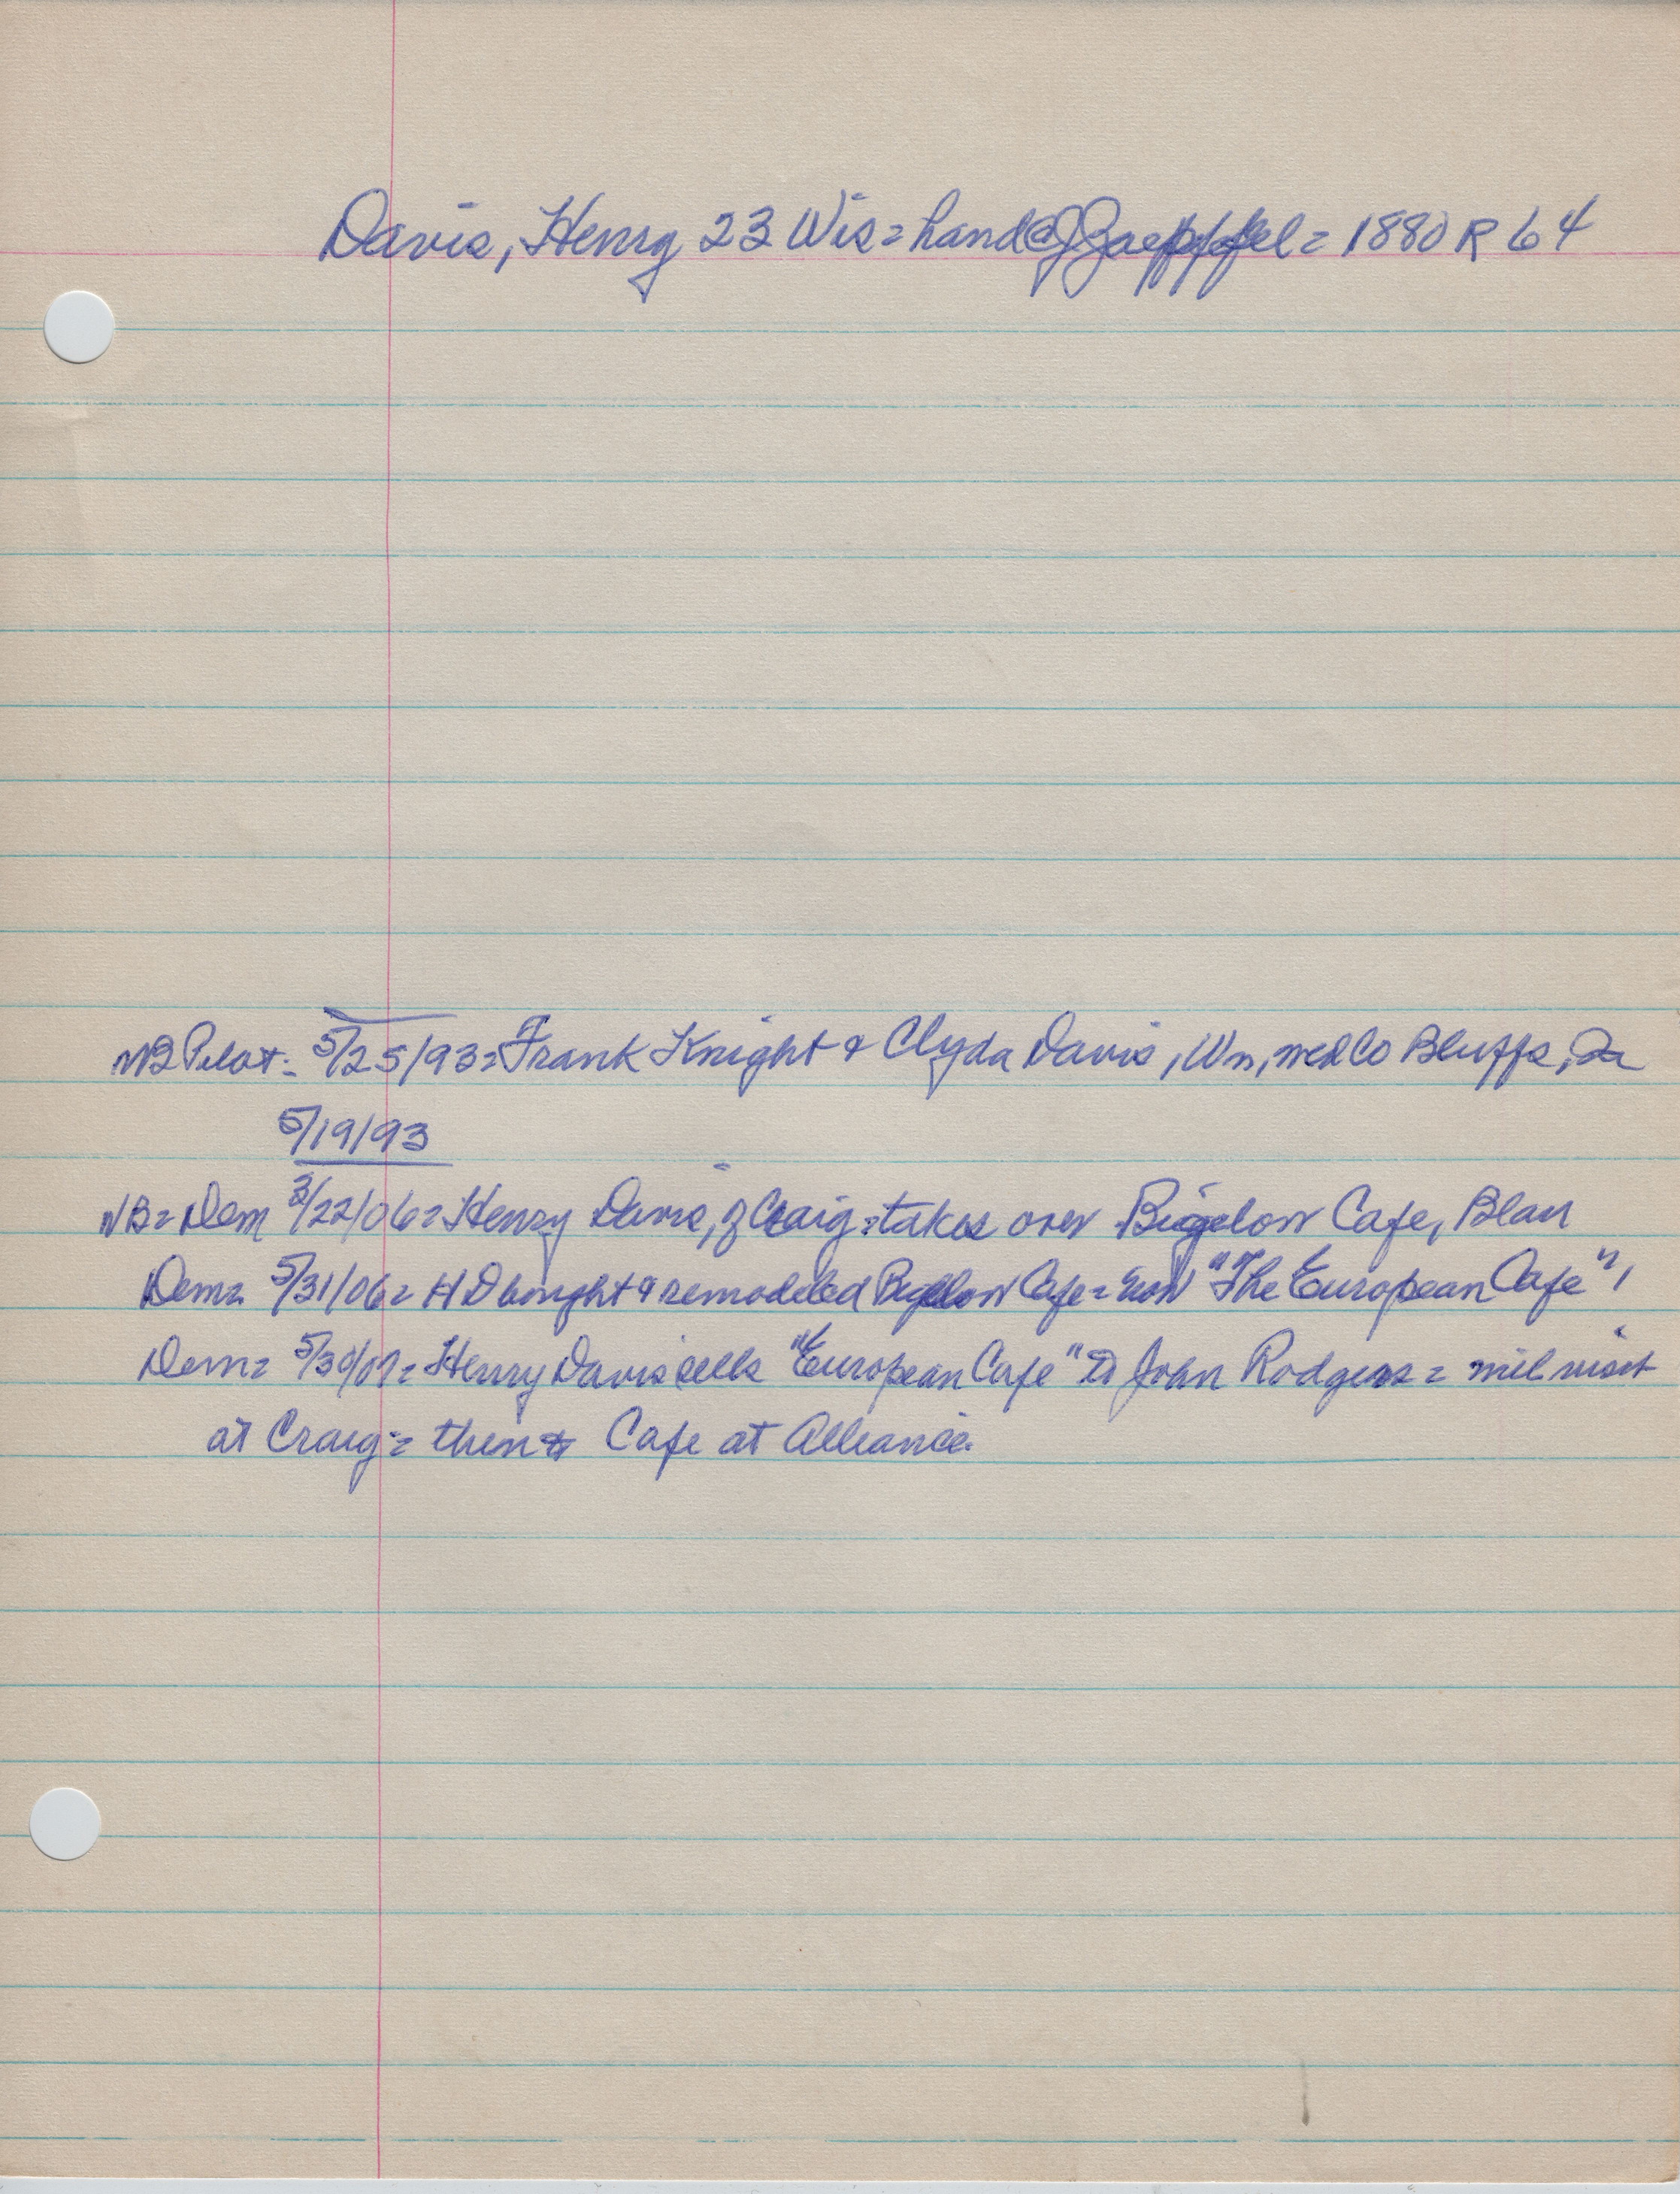 Davis, Henry 23 Wis = hand @ J Gaepffel = 1880 R 64
NB Pilot = 5/25/93 = Frank Knight & Clyda Davis, Wn, med Co Bluffs, Ia
5/19/93
NB = Dem 3/22/06 = Henry Davis, of Craig = takes over Bigelow Cafe, Blair
Dem = 5/31/06 = H D bought & remodeled Bigelow Cafe = now "The European Cafe",
Dem = 5/30/07 = Henry Davis sells "European Cafe" to John Rodgers = will visit
at Craig = then to Cafe at Alliance.